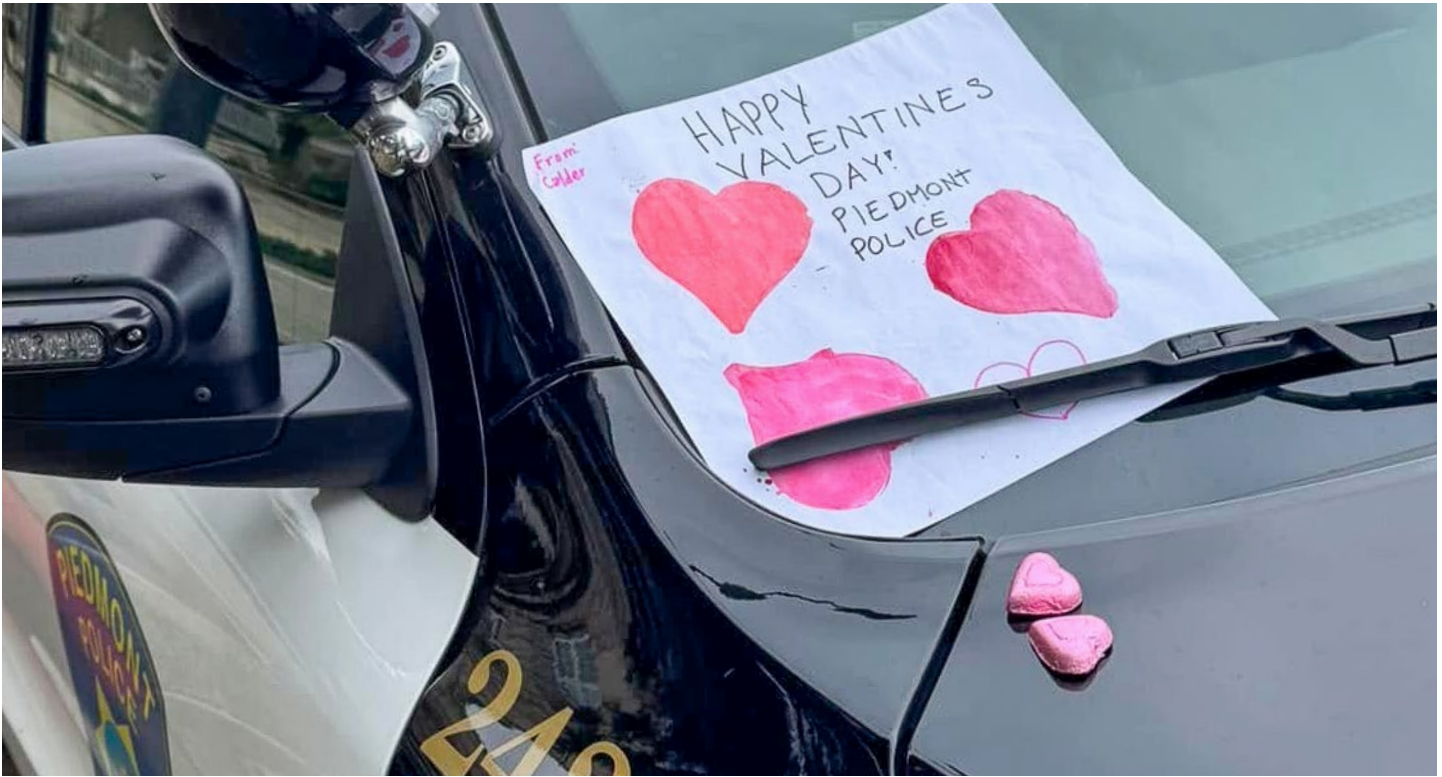 From
Calder
HAPPY
VALENTINES
DAY!
PIEDMONT
POLICE
PIEDMONT
POLICE